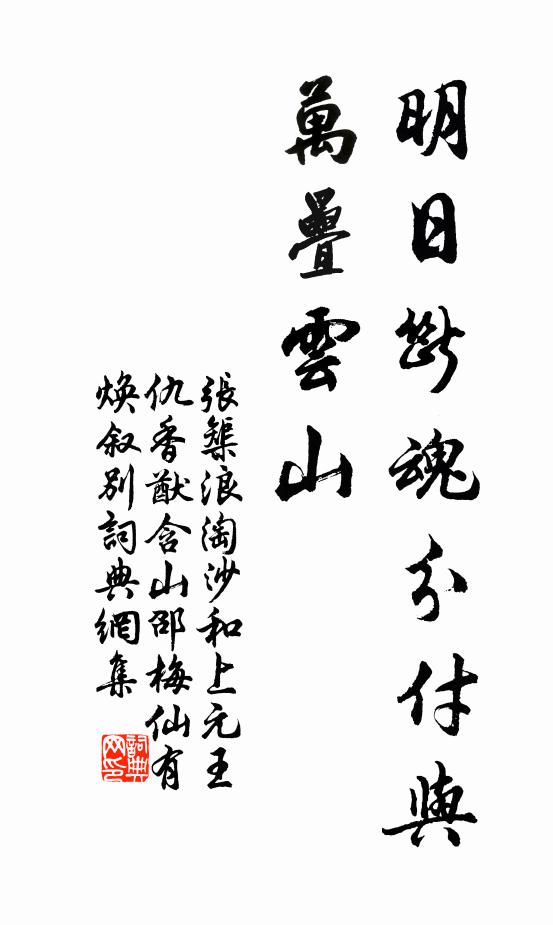 明日斷魂分付與
萬疊雲山
張榘浪淘沙和上元王
仇香猷含山邵梅仙有
煥叙別詞典網集
詞典網印